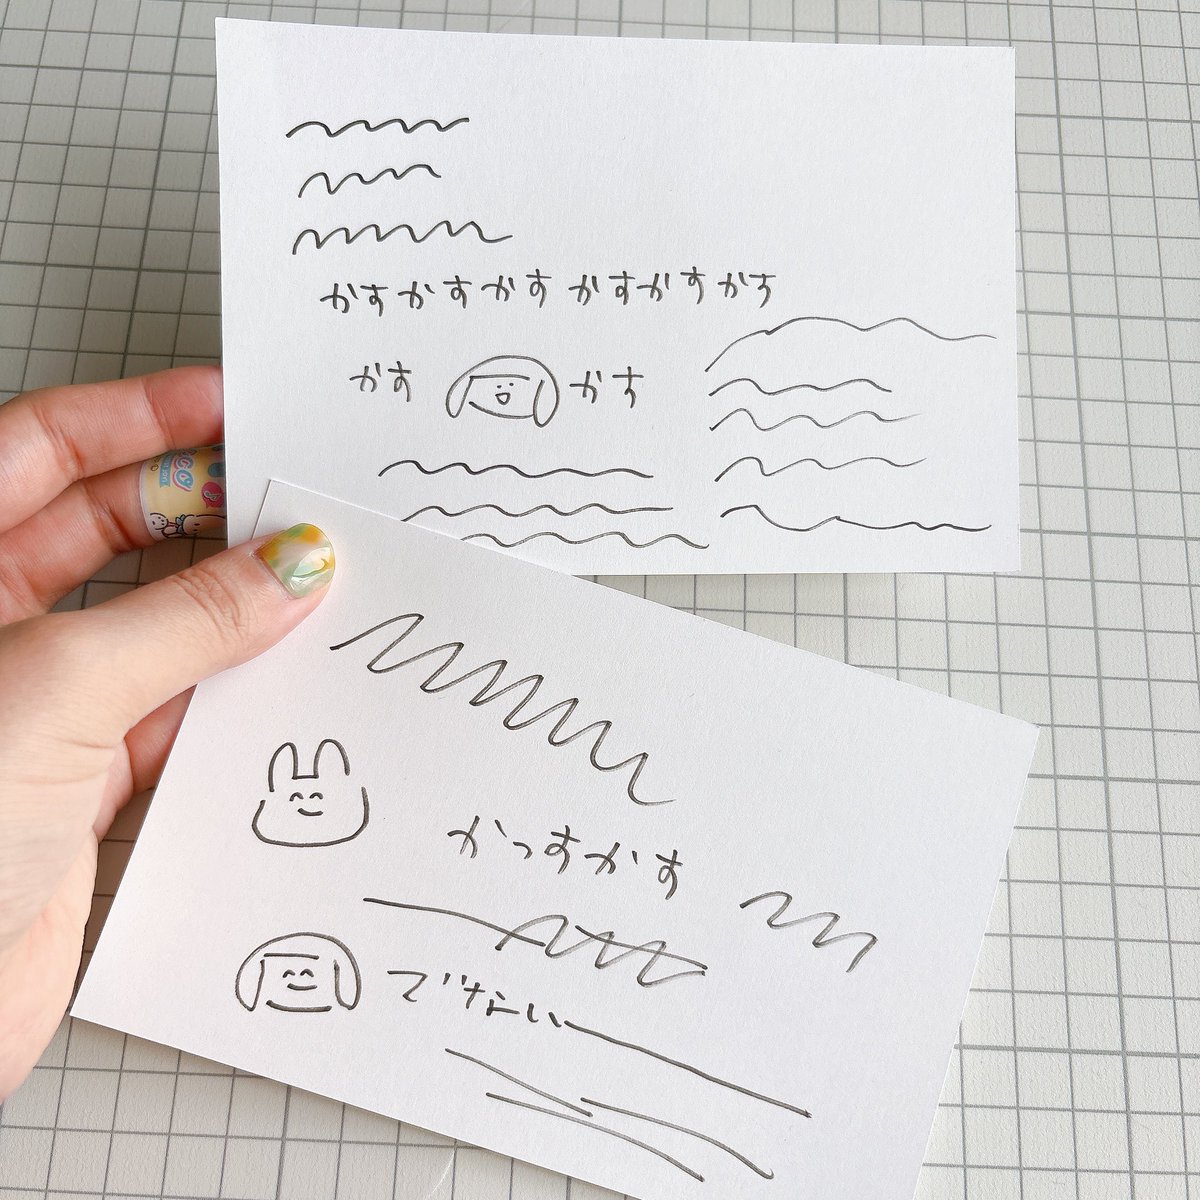 かすかすかす かすかすかす
かす かす
かっすかす
でないー